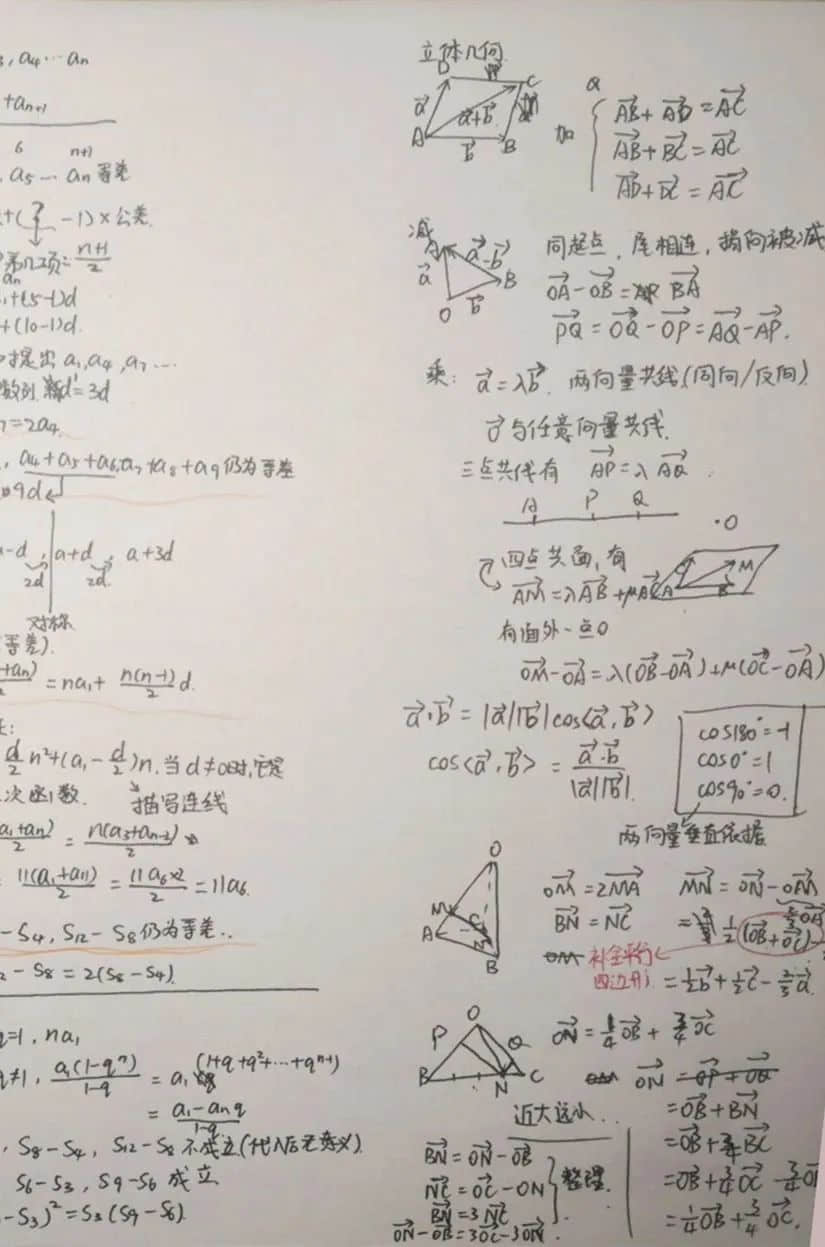 , a₄…aₙ
+aₙ₊₁
6 n+1
, a₅…aₙ 等差
+(?-1)×公差.
第几项=\frac{n+1}{2}
aₙ
+(5-1)d
+(10-1)d.
提出 a₁,a₄,a₇…
数列 新d'=3d
=2a₄.
, a₄+a₅+a₆, a₇+a₈+a₉仍为等差
9d
-d, a+d, a+3d
2d 2d
对称
等差).
+aₙ) = na₁+\frac{n(n-1)}{2}d.
\frac{d}{2}n²+(a₁-\frac{d}{2})n. 当d≠0时,它是
次函数. 描写连线
\frac{a₁+aₙ)}{2} = \frac{n(a₃+aₙ₋₂)}{2}
\frac{11(a₁+a₁₁)}{2} = \frac{11a₆×2}{2} = 11a₆.
-S₄, S₁₂-S₈仍为等差..
-S₈=2(S₈-S₄).
q=1, na₁
q≠1, \frac{a₁(1-qⁿ)}{1-q} = a₁(1+q+q²+…+qⁿ⁺¹)
= \frac{a₁-aₙq}{1-q}
, S₈-S₄, S₁₂-S₈ 不成立(代入后无意义).
S₆-S₃, S₉-S₆ 成立
-S₃)²=S₃(S₉-S₆).
立体几何
D C
\vec{a} \vec{a}+\vec{b}
A \vec{b} B
加
\vec{AB}+\vec{AD}=\vec{AC}
\vec{AB}+\vec{BC}=\vec{AC}
\vec{AD}+\vec{DC}=\vec{AC}
减
A \vec{a}-\vec{b}
\vec{a} B
O \vec{b}
同起点,尾相连,指向被减
\vec{OA}-\vec{OB}=\vec{BA}
\vec{PQ}=\vec{OQ}-\vec{OP}=\vec{AQ}-\vec{AP}.
乘: \vec{a}=λ\vec{b}. 两向量共线(同向/反向)
\vec{0}与任意向量共线.
三点共线有 \vec{AP}=λ\vec{AQ}.
A P Q
·O
四点共面,有
\vec{AM}=λ\vec{AB}+μ\vec{AC}
A B M
有面外一点O
\vec{OM}-\vec{OA}=λ(\vec{OB}-\vec{OA})+μ(\vec{OC}-\vec{OA})
\vec{a}·\vec{b}=|\vec{a}||\vec{b}|cos<\vec{a},\vec{b}>
cos<\vec{a},\vec{b}>=\frac{\vec{a}·\vec{b}}{|\vec{a}||\vec{b}|}.
cos180°=-1
cos0°=1
cos90°=0.
两向量垂直依据
O
M
A
B
\vec{OM}=2\vec{MA} \vec{MN}=\vec{ON}-\vec{OM}
\vec{BN}=\vec{NC} =\frac{1}{2}(\vec{OB}+\vec{OC})-\frac{2}{3}\vec{OA}
补全平行
四边形. =\frac{1}{2}\vec{b}+\frac{1}{2}\vec{c}-\frac{2}{3}\vec{a}.
O
P Q
B N C
\vec{ON}=\frac{1}{4}\vec{OB}+\frac{3}{4}\vec{OC}
\vec{ON}=\vec{OP}+\vec{OQ}
=\vec{OB}+\vec{BN}
近大远小..
=\vec{OB}+\frac{3}{4}\vec{BC}
=\vec{OB}+\frac{3}{4}\vec{OC}-\frac{3}{4}
=\frac{1}{4}\vec{OB}+\frac{3}{4}\vec{OC}.
\vec{BN}=\vec{ON}-\vec{OB}
\vec{NC}=\vec{OC}-ON
\vec{BN}=3\vec{NC}
\vec{ON}-\vec{OB}=3\vec{OC}-3\vec{ON}.
整理.